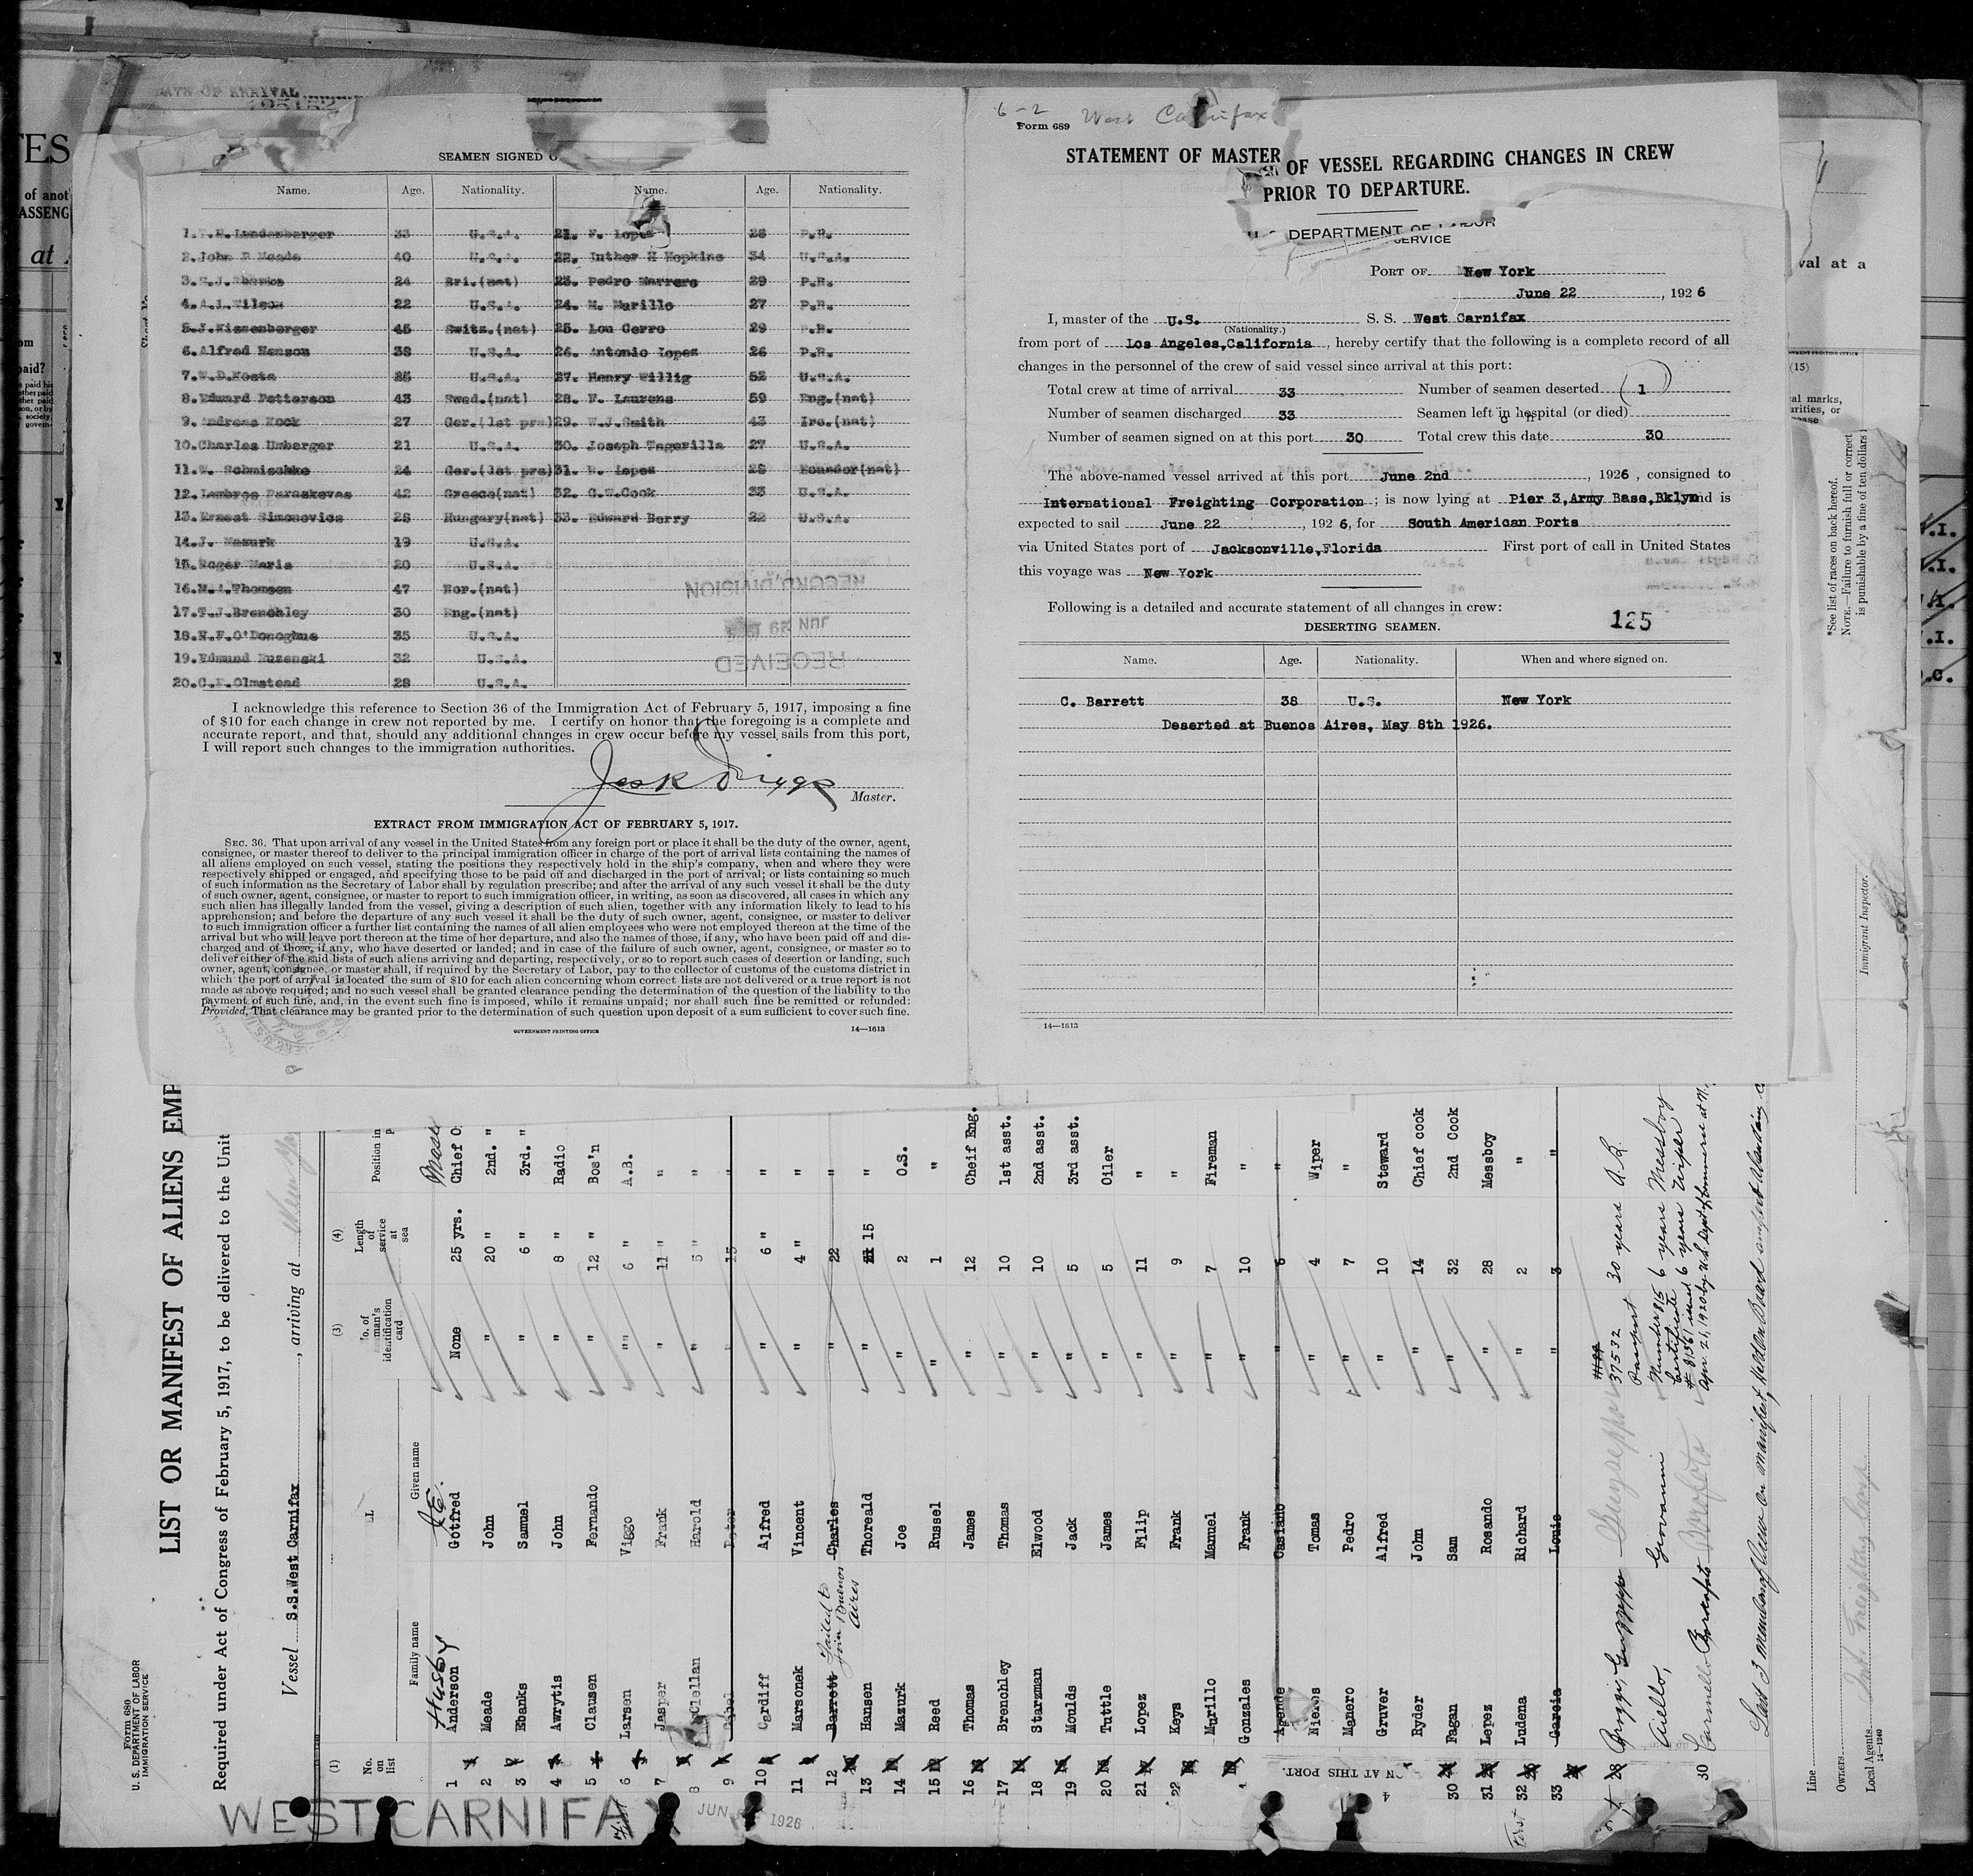 DATE OF ARRIVAL
SEAMEN SIGNED O
Name. Age. Nationality. Name. Age. Nationality.
1. Lundenberger 33 U.S.A. 21. F. Lopes 28 P.R.
2. John Meade 40 U.S.A. 22. Luther H Hopkins 34 U.S.A.
3. 24 Bri.(nat) 23. Pedro Marrero 29 P.R.
4. A.L.Wilson 22 U.S.A. 24. M. Murillo 27 P.R.
5. J.Nissenberger 45 Switz.(nat) 25. Lou Cerro 29 P.R.
6. Alfred Henson 38 U.S.A. 26. Antonio Lopes 26 P.R.
7. W.D.Kosta U.S.A. 27. Henry Willig 52 U.S.A.
8. Edward Petterson 43 Swed.(nat) 28. F. Laurens 59 Eng.(nat)
9. Andreas Kock 27 Ger.(1st prs) 29. W.J.Smith 43 Ire.(nat)
10. Charles Umberger 21 U.S.A. 30. Joseph Tagerilla 27 U.S.A.
11. W. Schmischke 24 Ger.(1st prs) 31. Lopes 28 Ecuador(nat)
12. Lambros Paraskevas 42 Greece(nat) 32. C.W.Cook 33 U.S.A.
13. Ernest Simonovics 28 Hungary(nat) 33. Edward Berry 22 U.S.A.
14. J. Mazurk 19 U.S.A.
15. Roger Maris 20 U.S.A.
16. M.A.Thomsen 47 Nor.(nat)
17. T.J.Brenchley 30 Eng.(nat)
18. N.F.O'Donoghue 35 U.S.A.
19. Edmund Buzenski 32 U.S.A.
20. C.E.Olmstead 28 U.S.A.
RECORD DIVISION
JUN 29 1926
RECEIVED
I acknowledge this reference to Section 36 of the Immigration Act of February 5, 1917, imposing a fine
of $10 for each change in crew not reported by me. I certify on honor that the foregoing is a complete and
accurate report, and that, should any additional changes in crew occur before my vessel sails from this port,
I will report such changes to the immigration authorities.
Master.
EXTRACT FROM IMMIGRATION ACT OF FEBRUARY 5, 1917.
SEC. 36. That upon arrival of any vessel in the United States from any foreign port or place it shall be the duty of the owner, agent,
consignee, or master thereof to deliver to the principal immigration officer in charge of the port of arrival lists containing the names of
all aliens employed on such vessel, stating the positions they respectively hold in the ship's company, when and where they were
respectively shipped or engaged, and specifying those to be paid off and discharged in the port of arrival; or lists containing so much
of such information as the Secretary of Labor shall by regulation prescribe; and after the arrival of any such vessel it shall be the duty
of such owner, agent, consignee, or master to report to such immigration officer, in writing, as soon as discovered, all cases in which any
such alien has illegally landed from the vessel, giving a description of such alien, together with any information likely to lead to his
apprehension; and before the departure of any such vessel it shall be the duty of such owner, agent, consignee, or master to deliver
to such immigration officer a further list containing the names of all alien employees who were not employed thereon at the time of the
arrival but who will leave port thereon at the time of her departure, and also the names of those, if any, who have been paid off and dis-
charged and of those, if any, who have deserted or landed; and in case of the failure of such owner, agent, consignee, or master so to
deliver either of the said lists of such aliens arriving and departing, respectively, or so to report such cases of desertion or landing, such
owner, agent, consignee, or master shall, if required by the Secretary of Labor, pay to the collector of customs of the customs district in
which the port of arrival is located the sum of $10 for each alien concerning whom correct lists are not delivered or a true report is not
made as above required; and no such vessel shall be granted clearance pending the determination of the question of the liability to the
payment of such fine, and, in the event such fine is imposed, while it remains unpaid; nor shall such fine be remitted or refunded:
Provided, That clearance may be granted prior to the determination of such question upon deposit of a sum sufficient to cover such fine.
GOVERNMENT PRINTING OFFICE 14—1613
6-2 West Carnifax
Form 689
STATEMENT OF MASTER OF VESSEL REGARDING CHANGES IN CREW
PRIOR TO DEPARTURE.
U. S. DEPARTMENT OF LABOR
SERVICE
PORT OF New York
June 22, 1926
I, master of the U.S. S. S. West Carnifax
(Nationality.)
from port of Los Angeles,California, hereby certify that the following is a complete record of all
changes in the personnel of the crew of said vessel since arrival at this port:
Total crew at time of arrival 33 Number of seamen deserted (1)
Number of seamen discharged 33 Seamen left in hospital (or died)
Number of seamen signed on at this port 30 Total crew this date 30
The above-named vessel arrived at this port June 2nd, 1926, consigned to
International Freighting Corporation; is now lying at Pier 3,Army Base,Bklyn and is
expected to sail June 22, 1926, for South American Ports
via United States port of Jacksonville,Florida First port of call in United States
this voyage was New York
Following is a detailed and accurate statement of all changes in crew:
125
DESERTING SEAMEN.
Name. Age. Nationality. When and where signed on.
C. Barrett 38 U.S. New York
Deserted at Buenos Aires, May 8th 1926.
14—1613
Form 680
U. S. DEPARTMENT OF LABOR
IMMIGRATION SERVICE
LIST OR MANIFEST OF ALIENS EMP
Required under Act of Congress of February 5, 1917, to be delivered to the Unit
Vessel S.S.West Carnifax, arriving at New
(1) (3) (4)
No. on list Family name Given name No. of man's identification card Length of service at sea Position in
Husby J.E. Master
1 Anderson Gotfred None 25 yrs. Chief O
2 Meade John " 20 " 2nd. "
3 Ebanks Samuel " 6 " 3rd. "
4 Awrytis John " 8 " Radio
5 Clausen Fernando " 12 " Bos'n
6 Larsen Viggo " 6 " A.B.
7 Jasper Frank " 11 " "
8 McClellan Harold " 5 " "
9 Peter " 15 "
10 Cardiff Alfred " 6 " "
11 Marsonek Vincent " 4 " "
12 Barrett Charles " 22 "
Failed to join Buenos Aires
13 Hansen Thoreald " 15 "
14 Mazurk Joe " 2 O.S.
15 Reed Russel " 1 "
16 Thomas James " 12 Cheif Eng.
17 Brenchley Thomas " 10 1st asst.
18 Starzman Elwood " 10 2nd asst.
19 Moulds Jack " 5 3rd asst.
20 Tuttle James " 5 Oiler
21 Lopez Filip " 11 "
22 Keys Frank " 9 "
Murillo Manuel " 7 Fireman
Gonzales Frank " 10 "
Agende Casiano 6 "
Nieves Tomas " 4 Wiper
Manero Pedro " 7 "
Gruver Alfred " 10 Steward
Ryder John " 14 Chief cook
30 Fagan Sam " 32 2nd Cook
31 Lepez Rosando " 28 Messboy
32 Ludena Richard " 2 "
33 Garcia Louis " 3 "
37532 Passport 30 years A.B.
Aiello, Giovanni Number 815 6 years Messboy
Certificate # 81361 issued 6 years Wiper
30 Carmello Apr. 21, 1920 by U.S. Dept of Commerce at N.
Last 3 members of crew on manifest,
Line
Owners
Local Agents Int. Freighting Corp.
14—1240
ON AT THIS PORT.
WEST CARNIFAX
JUN 1926
*See list of races on back hereof.
NOTE.—Failure to furnish full or correct
is punishable by a fine of ten dollars
Immigrant Inspector.
val at a
(15)